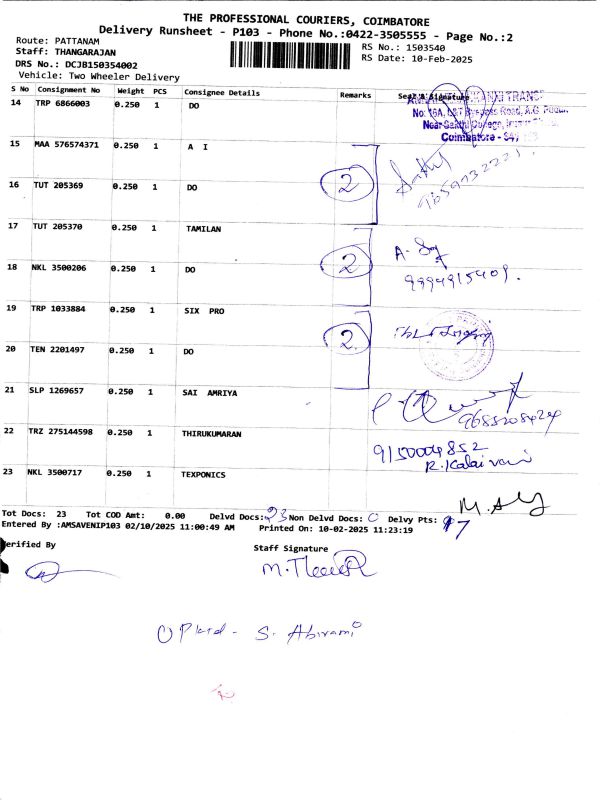 THE PROFESSIONAL COURIERS, COIMBATORE
Delivery Runsheet - P103 - Phone No.:0422-3505555 - Page No.:2
Route: PATTANAM
RS No.: 1503540
Staff: THANGARAJAN
RS Date: 10-Feb-2025
DRS No.: DCJB150354002
Vehicle: Two Wheeler Delivery
S No Consignment No Weight PCS Consignee Details Remarks Seal & Signature
14 TRP 6866003 0.250 1 DO
Coimbatore - 641
15 MAA 576574371 0.250 1 A I
2
16 TUT 205369 0.250 1 DO
17 TUT 205370 0.250 1 TAMILAN
2
18 NKL 3500206 0.250 1 DO
9894915409.
19 TRP 1033884 0.250 1 SIX PRO
2
20 TEN 2201497 0.250 1 DO
21 SLP 1269657 0.250 1 SAI AMRIYA
9688208424
22 TRZ 275144598 0.250 1 THIRUKUMARAN
9150004852
R.Kalaivani
23 NKL 3500717 0.250 1 TEXPONICS
Tot Docs: 23 Tot COD Amt: 0.00 Delvd Docs: 23 Non Delvd Docs: 0 Delvy Pts: 7
Entered By :AMSAVENIP103 02/10/2025 11:00:49 AM Printed On: 10-02-2025 11:23:19
Verified By
Staff Signature
S. Abirami